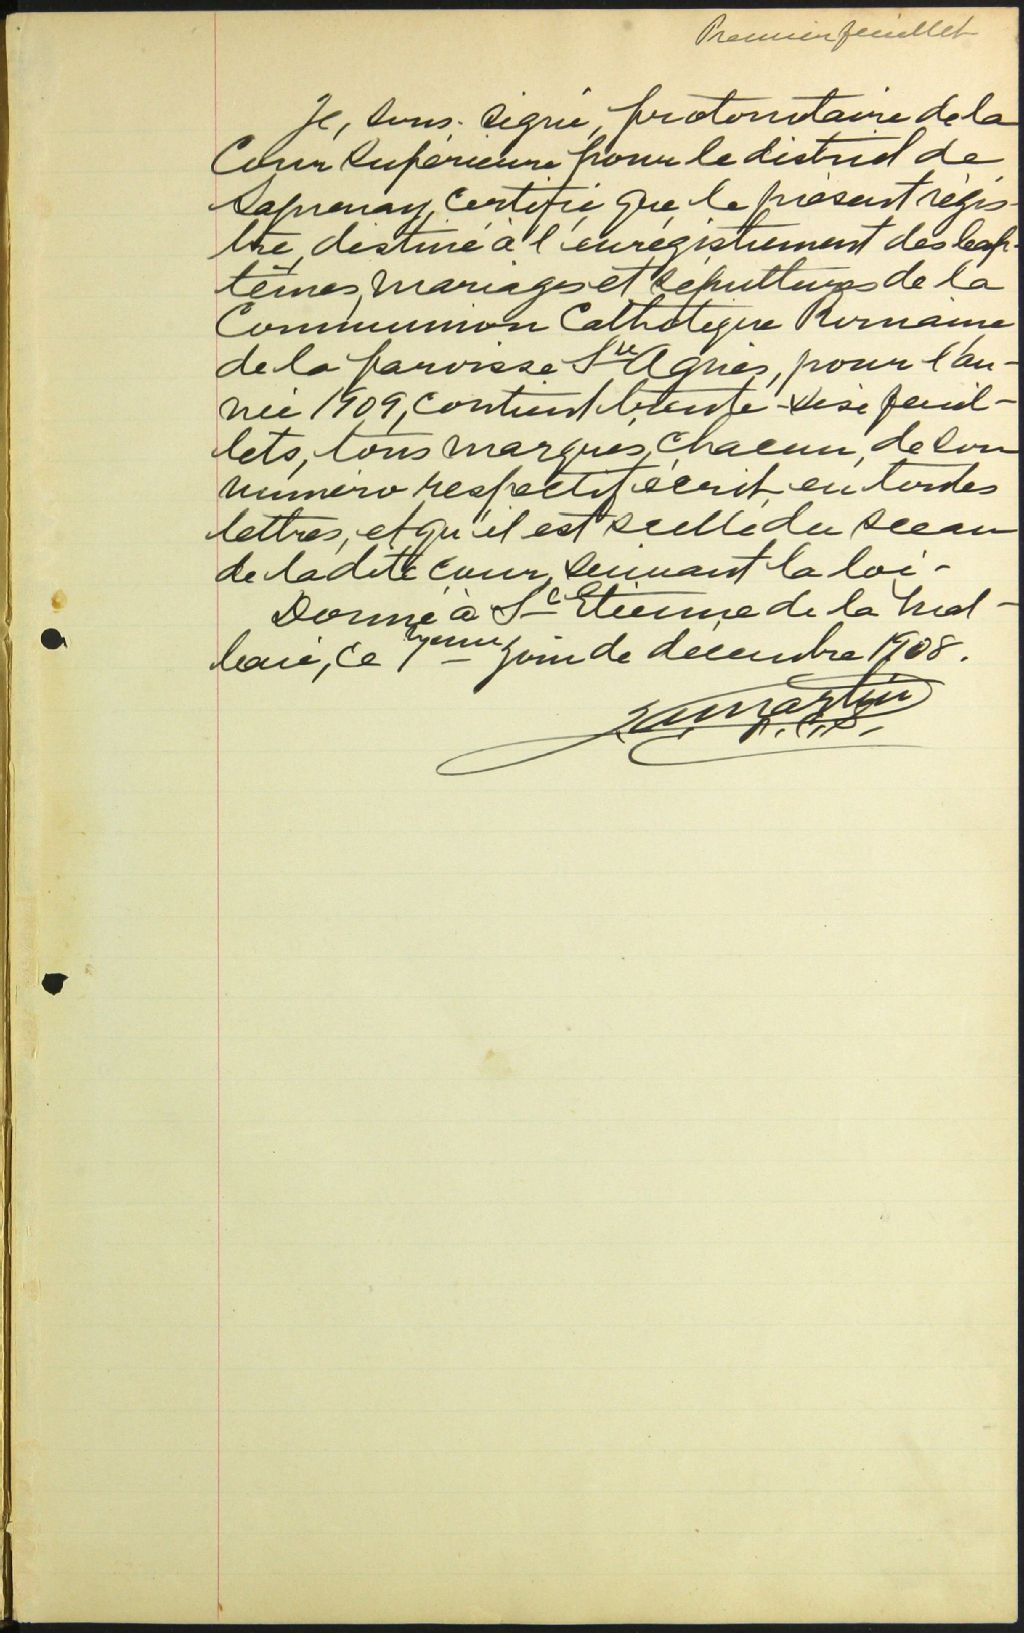 Premier feuillet
Je, sous-signé, protonotaire de la
Cour Supérieure pour le district de
Saguenay, certifie que le présent régis-
tre, destiné à l'enrégistrement des bap-
têmes, mariages et sépultures de la
Communion Catholique Romaine
de la paroisse Ste Agnès, pour l'an-
née 1909, contient trente-six feuil-
lets, tous marqués, chacun, de son
numéro respectif écrit en toutes
lettres, et qu'il est scellé du sceau
de la dite cour, suivant la loi -
Donné à St Etienne de la Mal-
baie, ce jour de décembre 1908.
Martin
P. C. S.